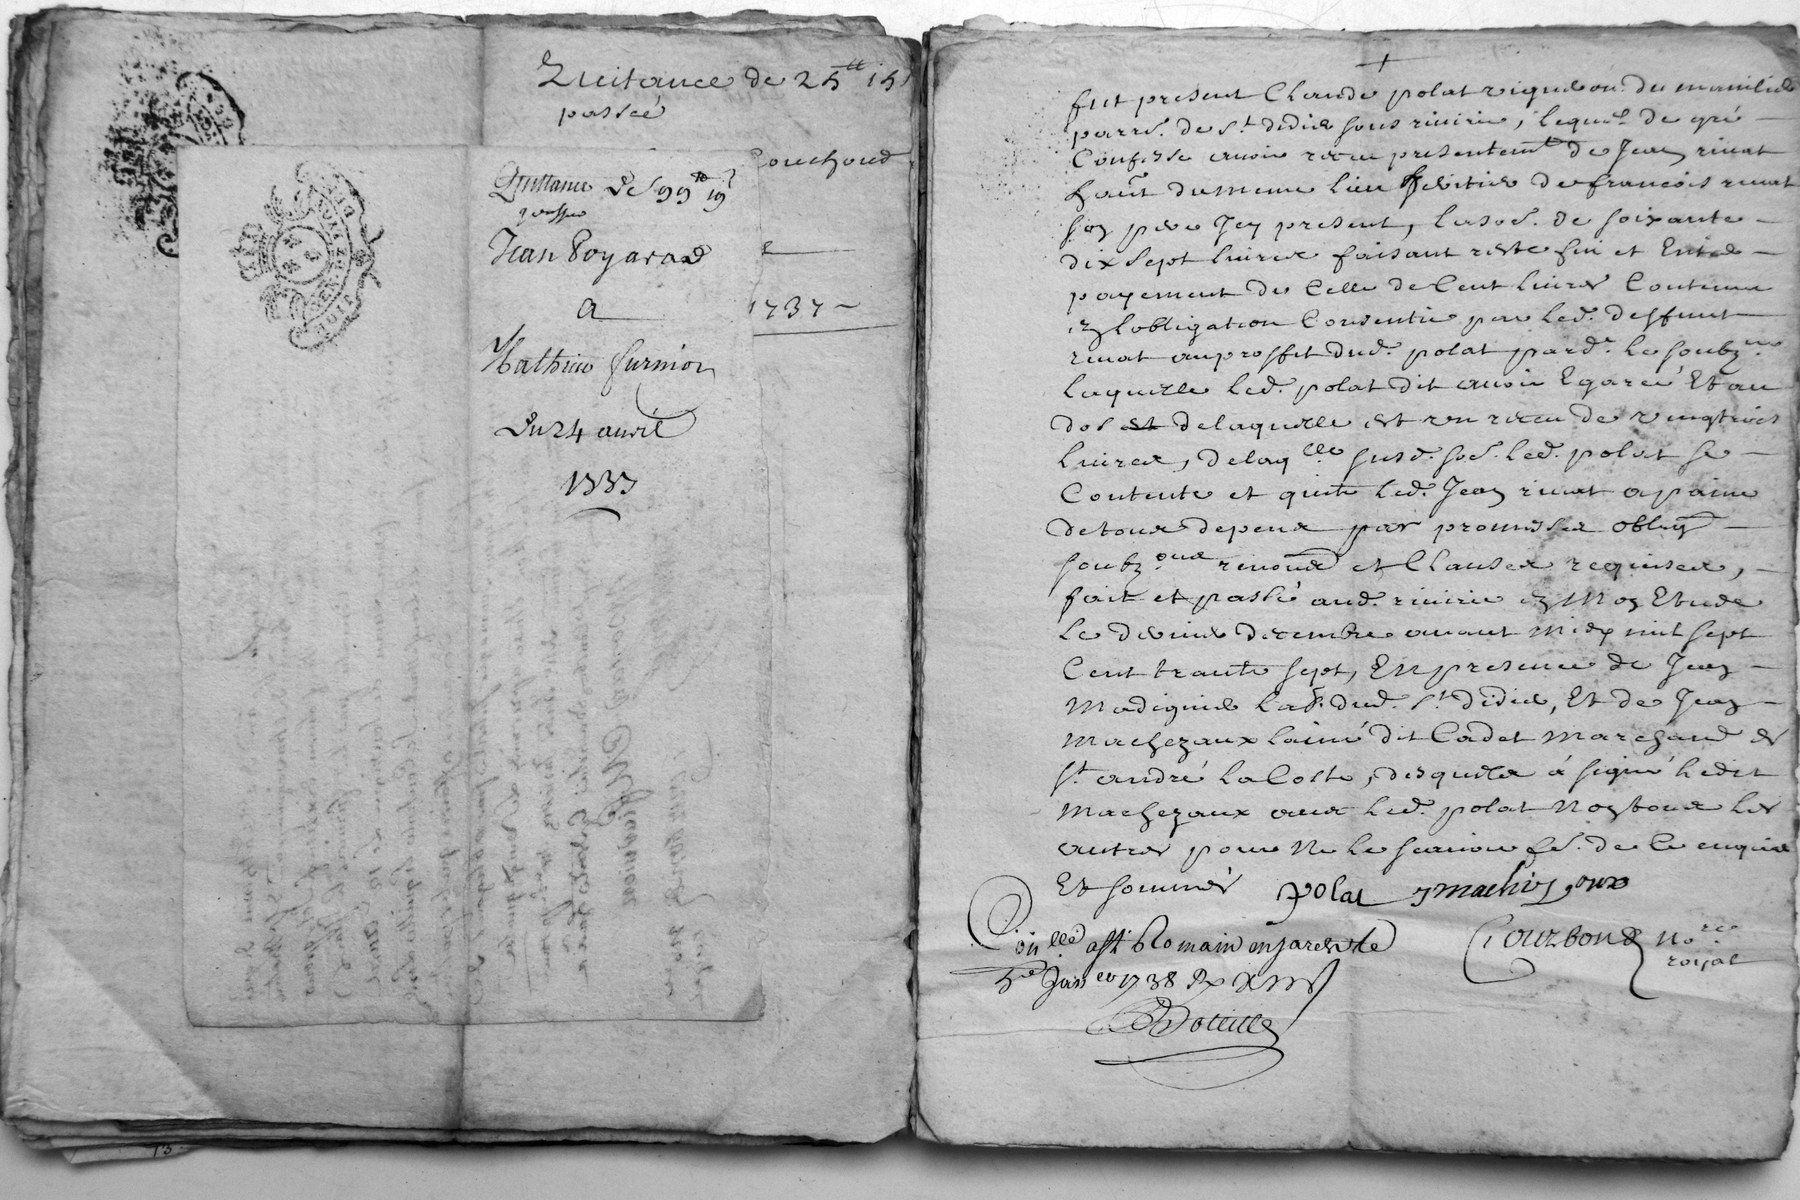 Quitance de 25ᵗᵗ 15ˢ
passée
Quittance de 99ᵗᵗ 19ˢ
passée
Jean Poyarad
a
Mathieu furnion
Du 24 avril
1737
ouchoud
1737
fut present Claude polat vigneron du
parrs. de st. didier sous riuirie, lequel de gré
Confesse auoir receu presentemt de Jean riuat
habt du meme lieu heritier de francois riuat
son pere Icy present, la some. de soixante
dix sept liures faisant reste fin et Entier
payement de Celle de Cent liures Contenue
en lobligation Consentie par led. deffunt
riuat au proffit dud. polat pardt. le soubzne
laquelle led. polat dit auoir Egareé Et au
dos de laquelle est vn receu de vingttrois
liures, delaqlle susd. some. led. polat se
Contente et quitte led. Jean riuat a paine
de tous depens par promesses oblig
soubzons renonons et Clauses requises,
fait et passé aud. riuirie en Mon Etude
le dernier decembre auant Midy mil sept
Cent trante sept, En presence de Jean
Madignier lab. dud. st. didier, Et de Jean
Machezaux lainé dit Cadet Marchand de
st. andré la Coste, desquels á signé ledit
Machezaux auec led. polat Non tous les
autres pour Ne le scauoir fe. de Ce enquis
Et sommés polat Jmachezoux
Courbon Nore
royal
Con.llé assé Romain en jarest le
5e Januer 1738 Rx